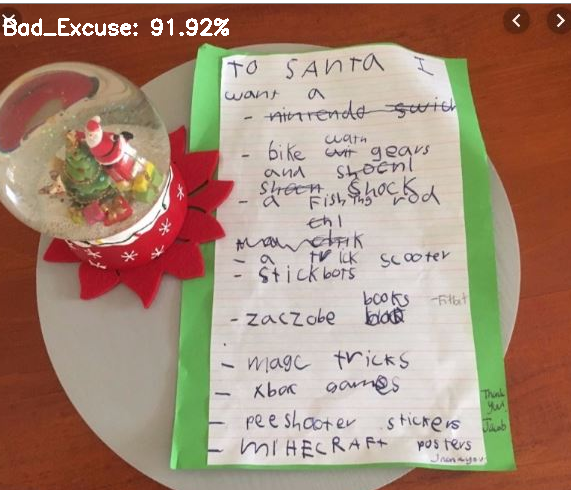 Bad_Excuse: 91.92%
TO SANTA I
want a
- nintendo swich
warn
- bike gears
and
shock
- a Fishing rod
- a trick scooter
- stickbots
books - Fitbit
- zaczobe
- magc tricks
- xbox games
- peeshooter stickers
- MINECRAFT posters
Thank
you
Jacob